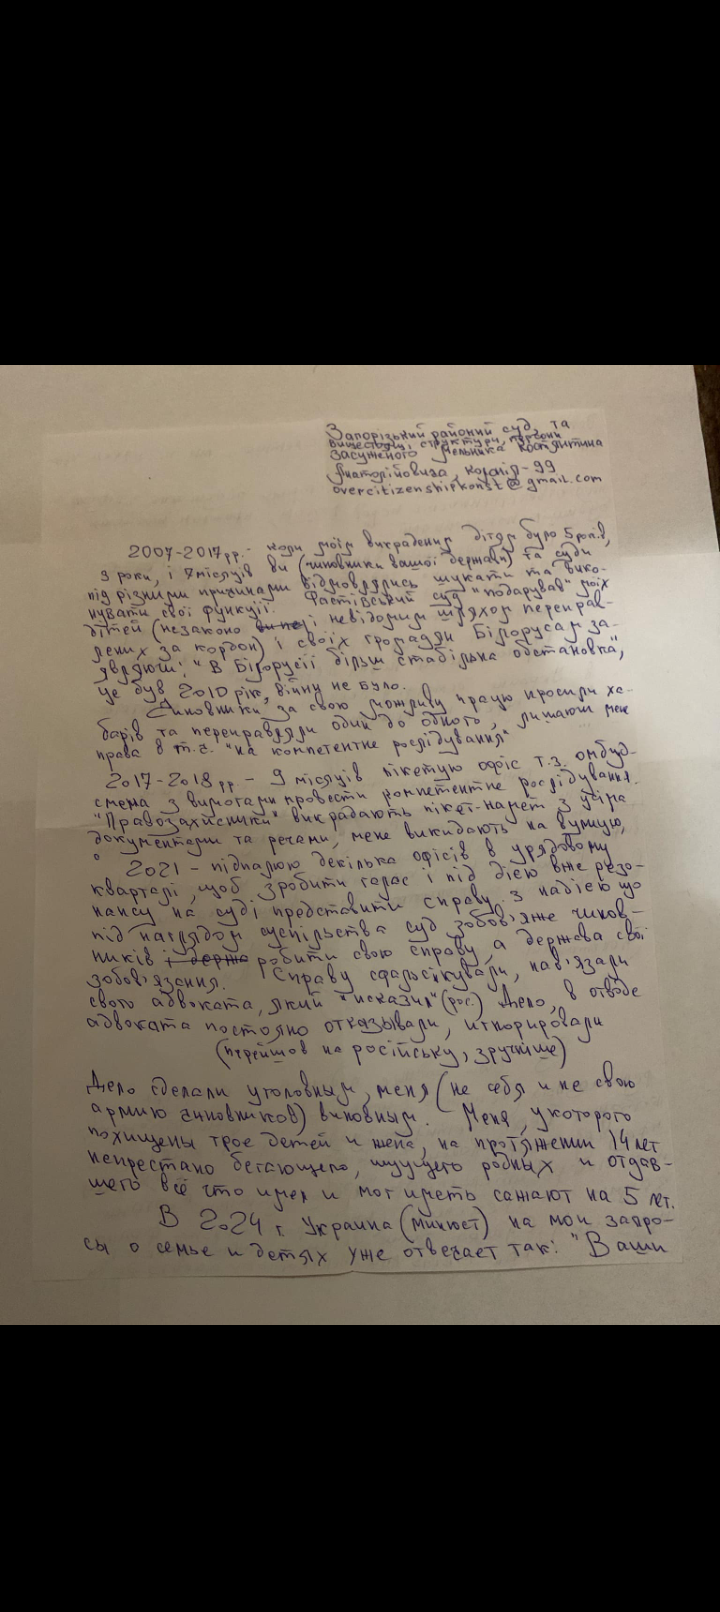 Запорізький районий суд, та
вищестоящі структури, персони
засуженого Мельника Костянтина
Анатолійовича, колонія-99
overcitizenshipkonst@gmail.com
2007-2017рр.- коли моїм викраденим дітям було 5 років,
3 роки, і 7 місяців ви (чиновники вашої держави) та суди
під різними причинами відмовлялись шукати та вико-
нувати свої функції. Фастівський суд "подарував" моїх
дітей (незаконо і невідомим шляхом переправ-
лених за кордон) і своїх громадян Білорусам за-
являючи: "В Білорусії більш стабільна обстановка",
це був 2010 рік, війни не було.
Чиновники за свою можливу працю просили ха-
барів та переправляли один до одного, лишаючи мене
права в т.ч. "на компетентне розслідування"
2017-2018 рр - 9 місяців пікетую офіс т.з. омбуд-
смена з вимогами провести компетентне розслідування.
"Правозахисники" викрадають пікет-намет з усіма
документами та речами, мене викидають на вулицю,
2021 - підпалюю декілька офісів в урядовому
кварталі, щоб зробити галас і під дією вже резо-
нансу на суді представити справу з надією що
під наглядом суспільства суд зобов'яже чинов-
ників і держа робити свою справу, а держава свої
зобов'язання. Справу сфальсікували, нав'язали
свого адвоката, який "исказил" (рос.) дело, в отводе
адвоката постояно отказывали, игнорировали
(перейшов на російську, зручніше)
Дело сделали уголовным, меня (не себя и не свою
армию чиновников) виновным. Меня, у которого
похищены трое детей и жена, на протяжении 14 лет
непрестано бегающего, ищущего родных и отдав-
шего всё что имел и мог иметь сажают на 5 лет.
В 2024 г Украина (минюст) на мои запро-
сы о семье и детях уже отвечает так: "Ваши